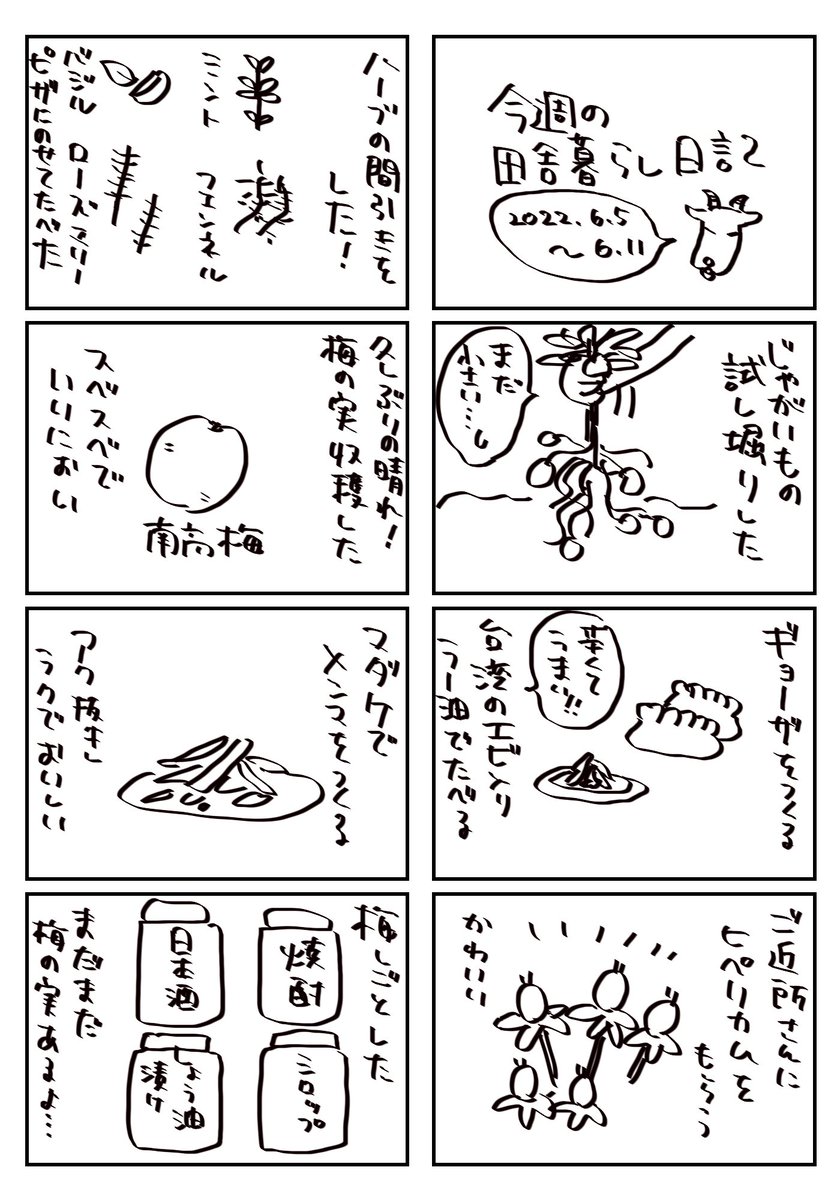 今週の
田舎暮らし日記
2022.6.5
〜6.11
じゃがいもの
試し堀りした
まだ
小さい…し
ギョーザをつくる
辛くて
うまい!!
台湾のエビ入り
ラー油でたべる
ご近所さんに
ヒペリカムを
もらう
かわいい
ハーブの間引きを
した!
ミント
フェンネル
バジル
ローズマリー
ピザにのせてたべた
久しぶりの晴れ!
梅の実収穫した
南高梅
スベスベで
いいにおい
マダケで
メンマをつくる
アク抜きし
ラクでおいしい
梅しごとした
焼酎
日本酒
シロップ
しょう油
漬け
まだまだ
梅の実あるよ…